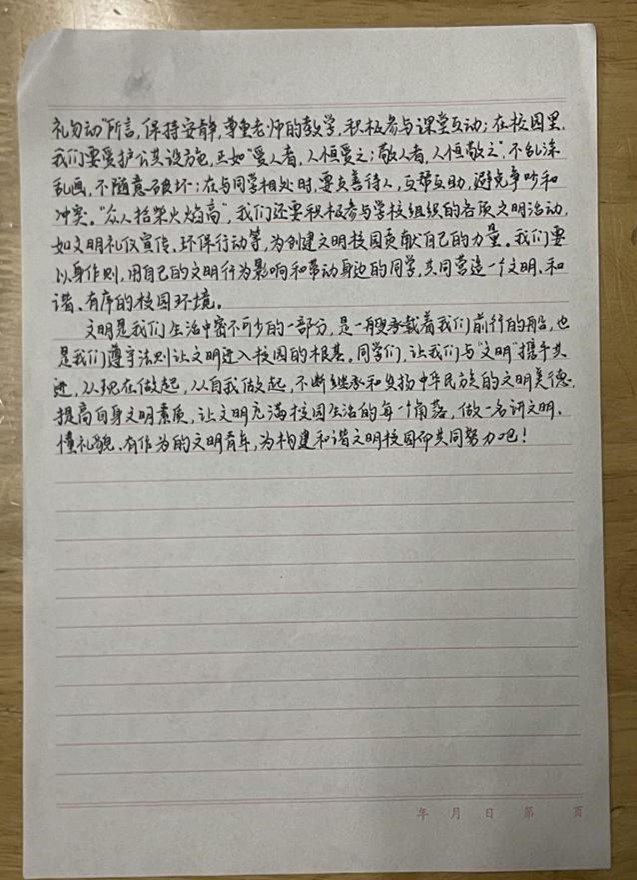 礼勿动”所言,保持安静,尊重老师的教学,积极参与课堂互动;在校园里,
我们要爱护公共设施,正如“爱人者,人恒爱之;敬人者,人恒敬之”,不乱涂
乱画,不随意破坏;在与同学相处时,要友善待人,互帮互助,避免争吵和
冲突。“众人拾柴火焰高”,我们还要积极参与学校组织的各项文明活动,
如文明礼仪宣传、环保行动等,为创建文明校园贡献自己的力量。我们要
以身作则,用自己的文明行为影响和带动身边的同学,共同营造一个文明、和
谐、有序的校园环境。
文明是我们生活中密不可少的一部分,是一艘承载着我们前行的船,也
是我们遵守法则让文明进入校园的根基。同学们,让我们与“文明”携手共
进,从现在做起,从自我做起,不断继承和发扬中华民族的文明美德,
提高自身文明素质,让文明充满校园生活的每一个角落,做一名讲文明、
懂礼貌、有作为的文明青年,为构建和谐文明校园而共同努力吧!
年 月 日 第 页